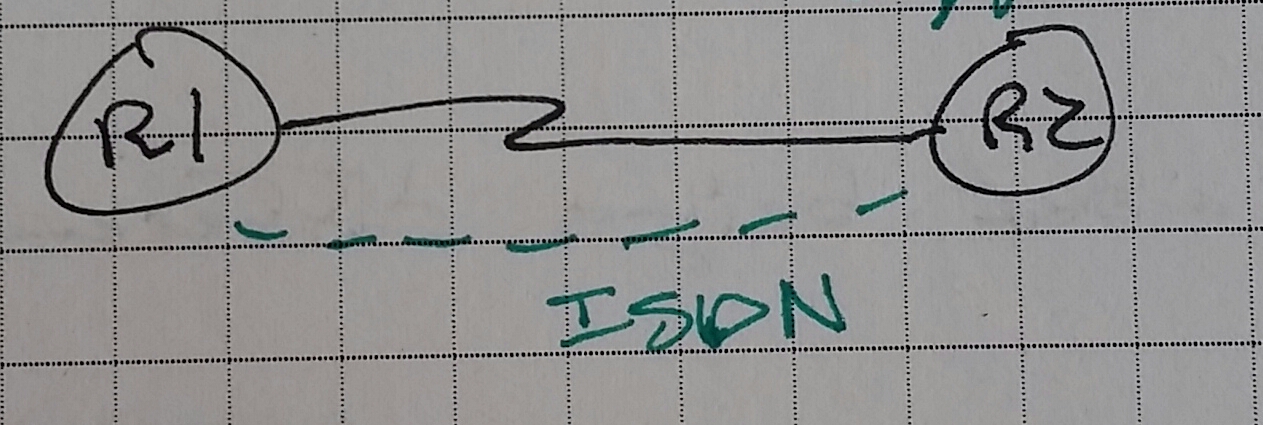 R1 R2
ISDN